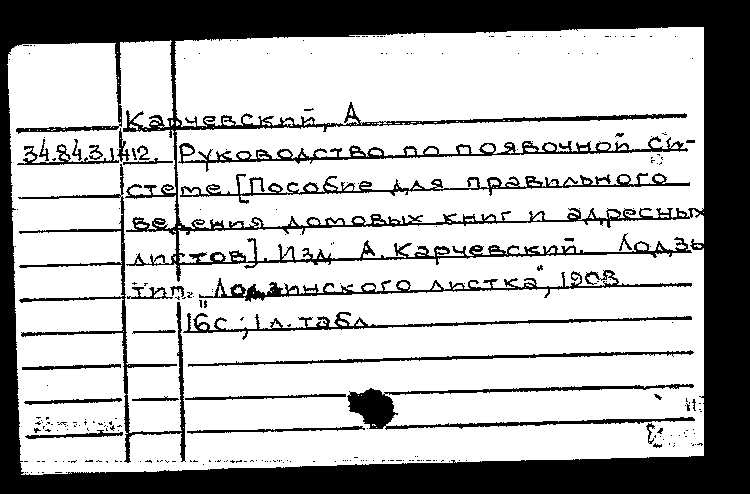 Карчевский, А
34.84.3.1412. Руководство по появочной си-
стеме. [Пособие для правильного
ведения домовых книг и адресных
листов]. Изд. А. Карчевский. Лодзь
тип. „Лодзинского листка", 1908
16с ; 1 л. табл.